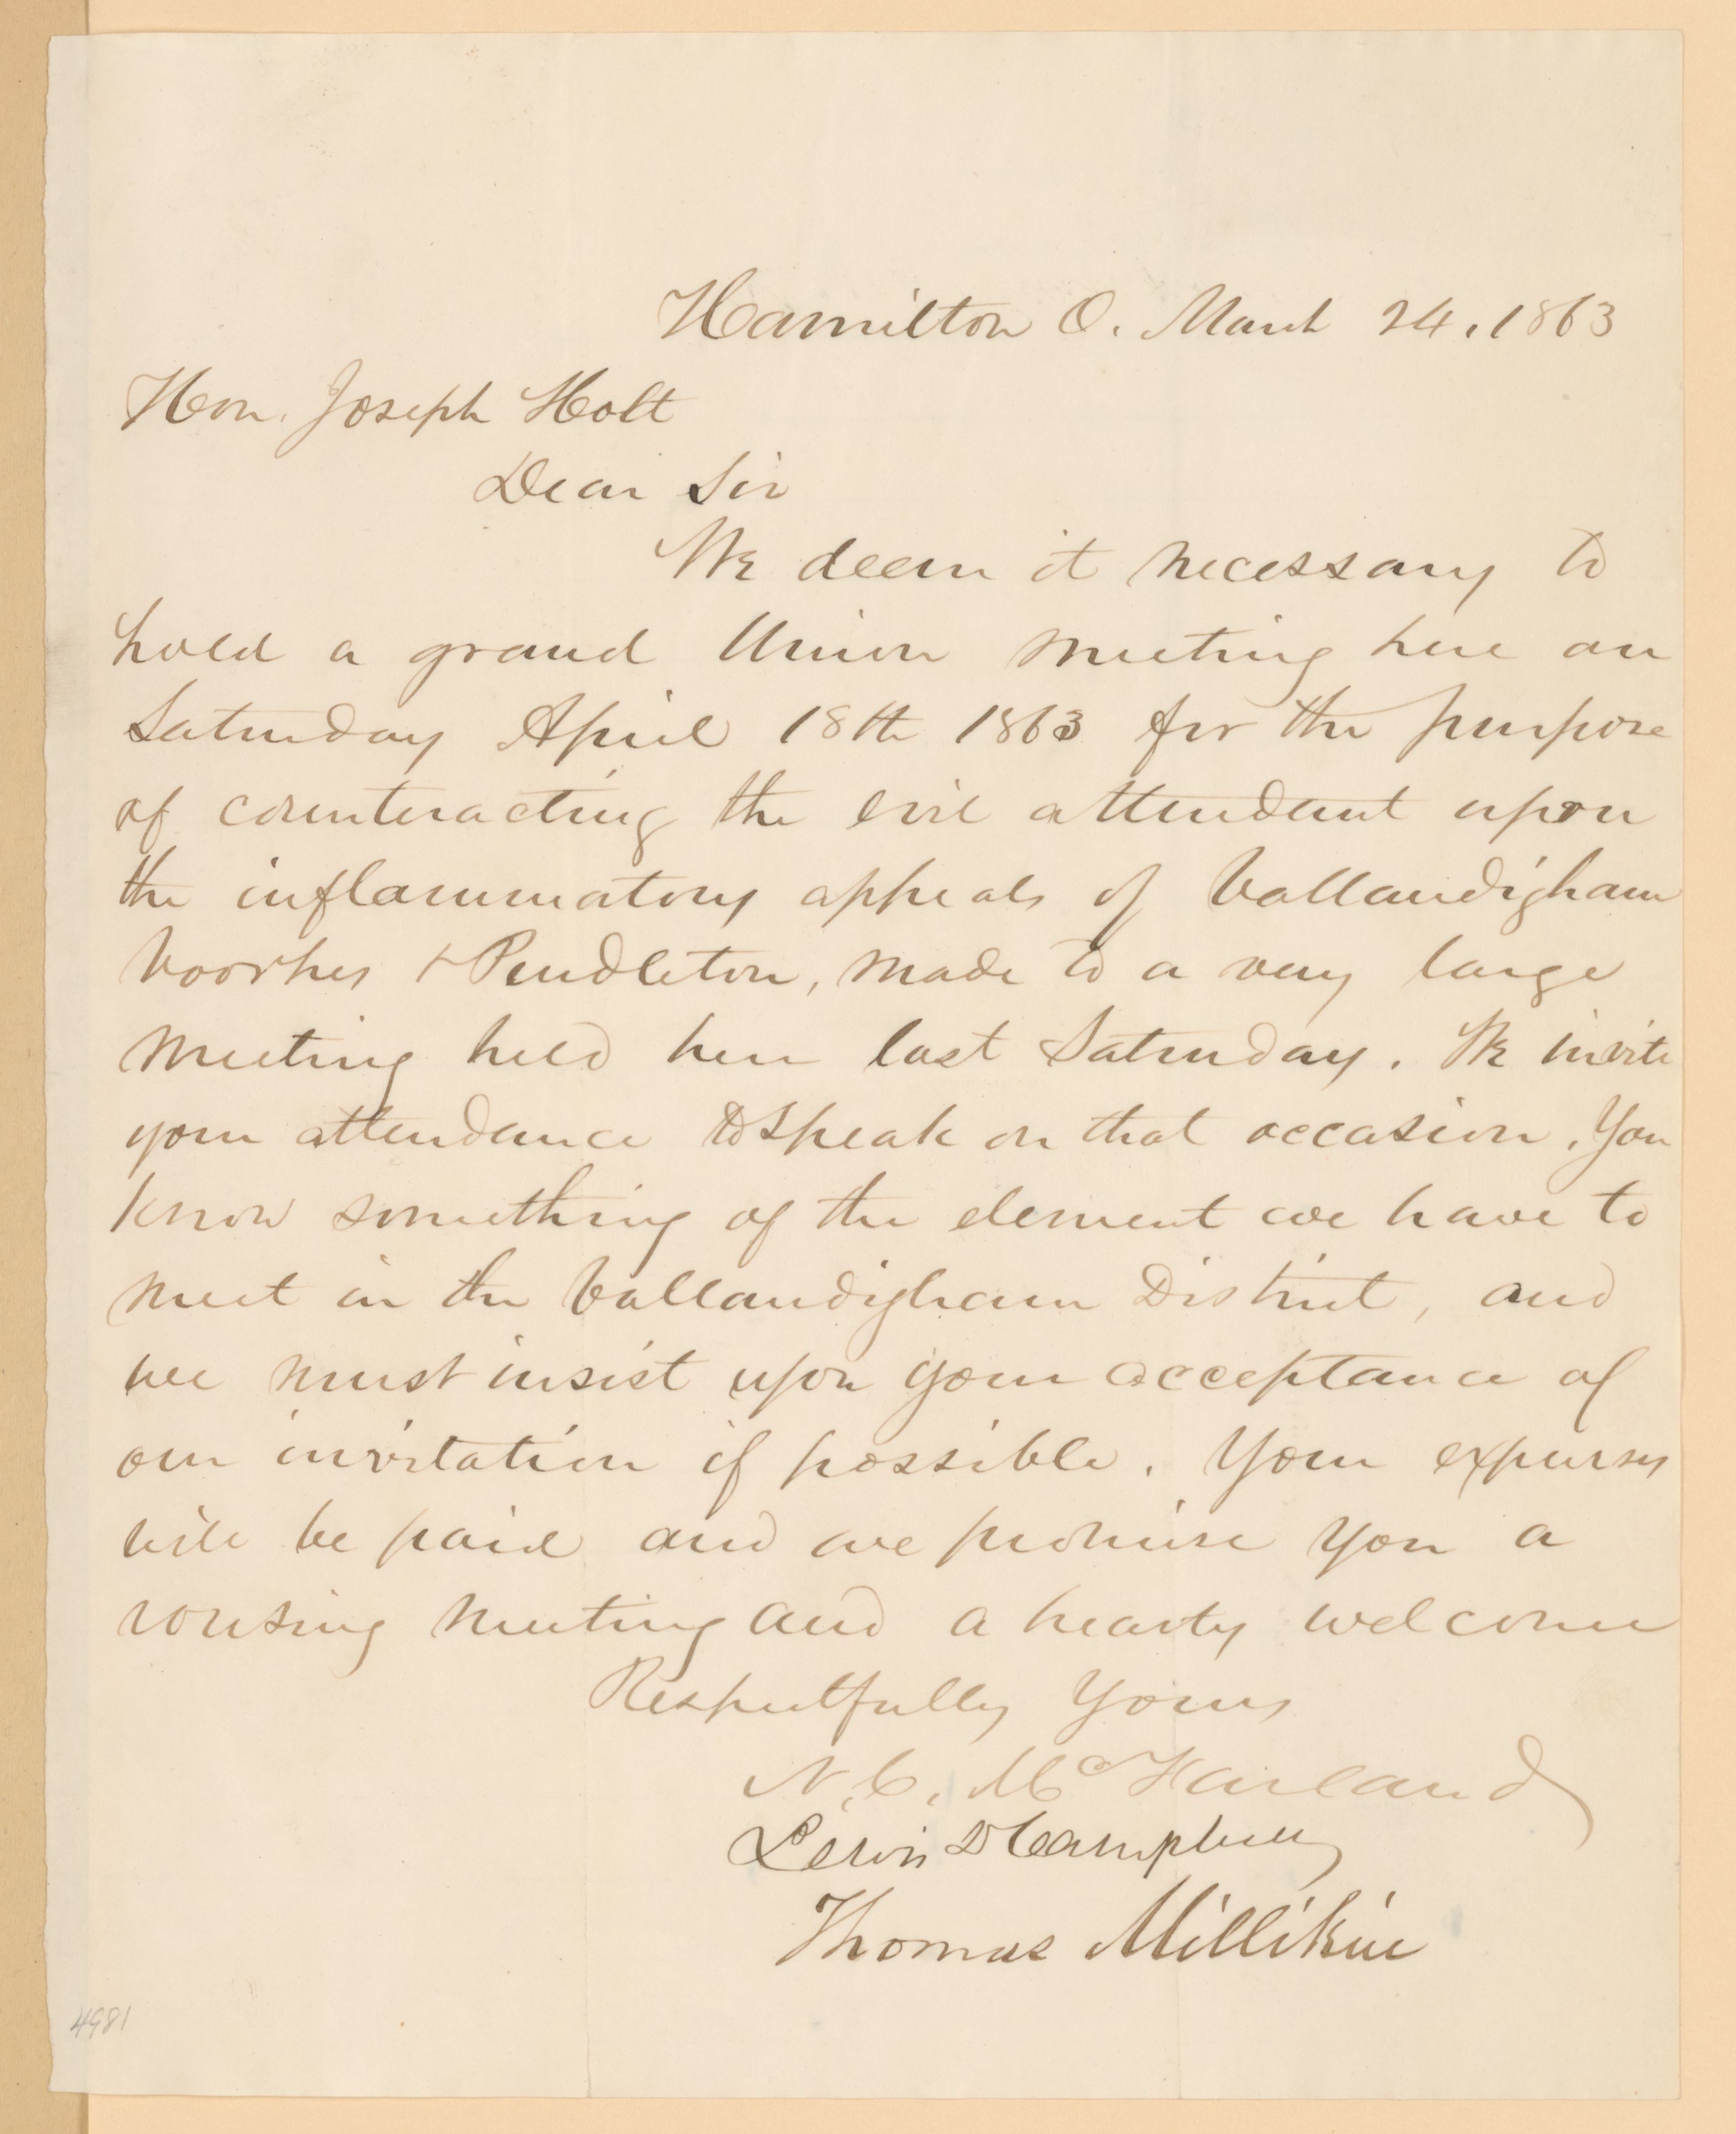 Hamilton O. March 24, 1863
Hon. Joseph Holt
Dear Sir
We deem it necessary to
hold a grand Union meeting here on
Saturday April 18th 1863 for the purpose
of counteracting the evil attendant upon
the inflammatory appeals of Vallandigham
Voorhes + Pendleton, made to a very large
meeting held here last Saturday. We invite
your attendance to speak on that occasion. You
know something of the element we have to
meet in the Vallandigham District, and
we must insist upon your acceptance of
our invitation if possible. Your expenses
will be paid and we promise you a
rousing meeting and a hearty welcome
Respectfully Yours
N. C. McFarland
Lewis D Campbell
Thomas Millikin
4981